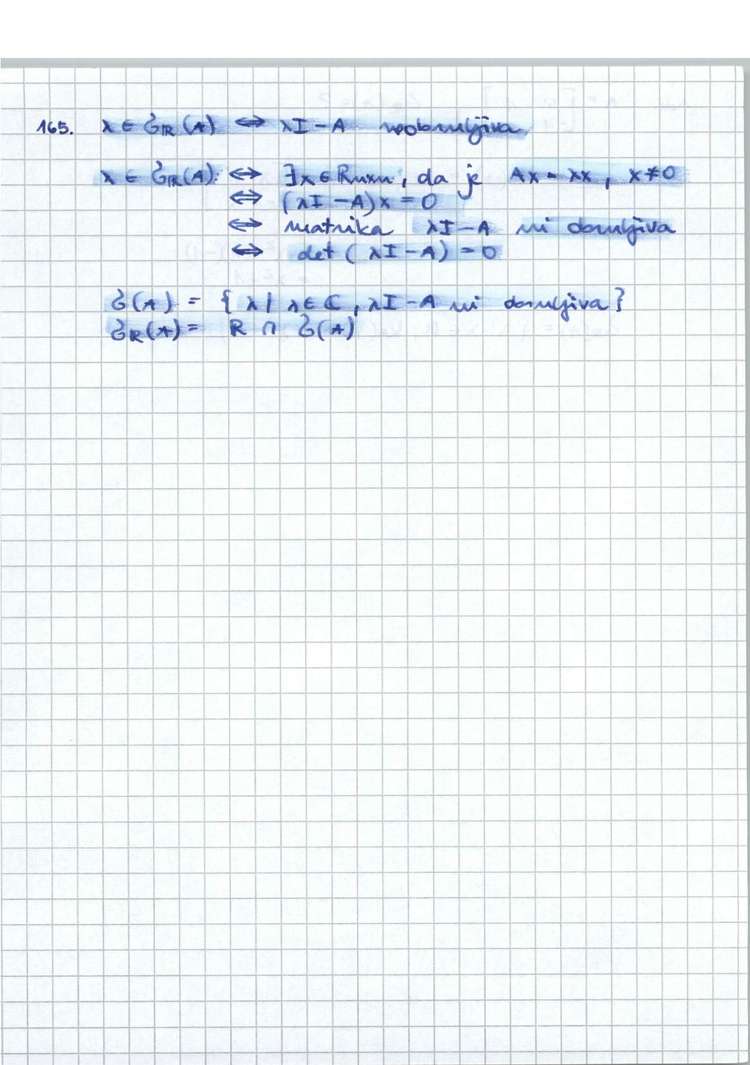 165. λ ∈ σ_ℝ(A) ⇔ λI - A neobrnljiva
λ ∈ σ_ℝ(A) ⇔ ∃x ∈ Rnxn, da je Ax = λx, x ≠ 0
⇔ (λI - A)x = 0
⇔ matrika λI - A ni obrnljiva
⇔ det (λI - A) = 0
σ(A) = { λ | λ ∈ ℂ, λI - A ni obrnljiva }
σ_ℝ(A) = ℝ ∩ σ(A)